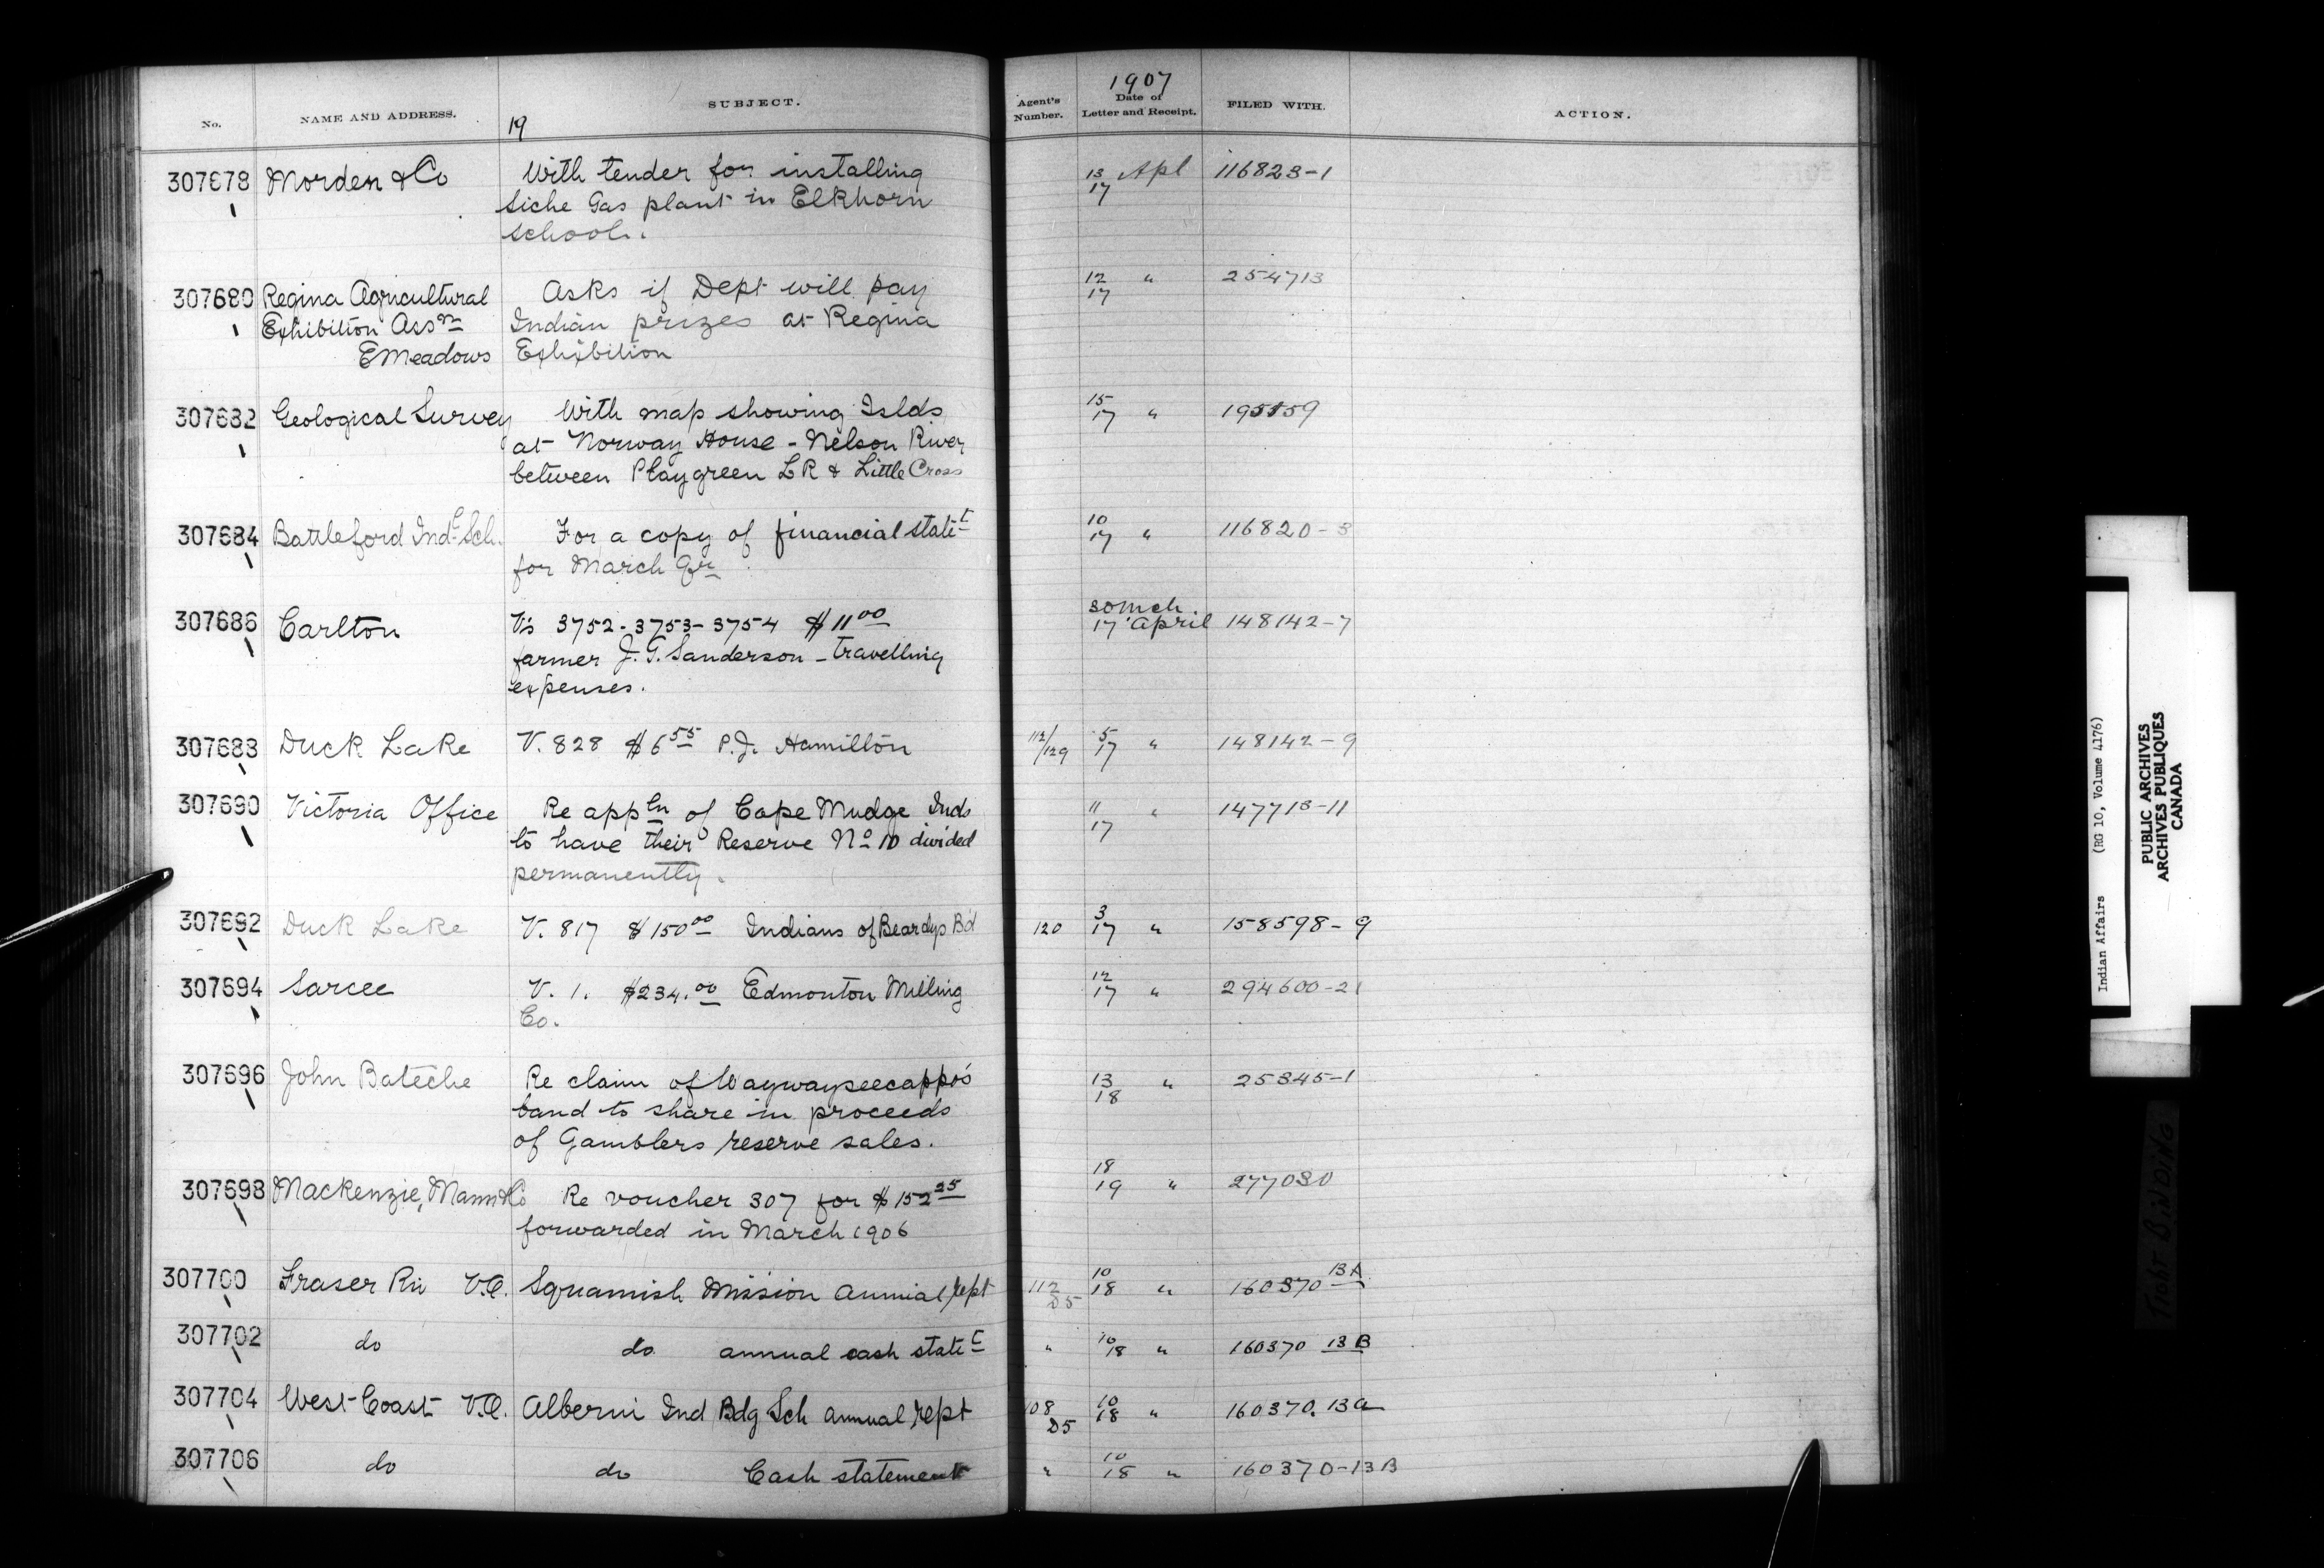 1907
No.
NAME AND ADDRESS.
SUBJECT.
19
Agent's Number.
Date of Letter and Receipt.
FILED WITH.
ACTION.
307678 Morden & Co With tender for installing 13 Apl 116823-1
Siche Gas plant in Elkhorn 17
School.
307680 Regina Agricultural Asks if Dept will pay 12 " 254713
Exhibition Assn Indian prizes at Regina 17
E Meadows Exhibition
307682 Geological Survey With map showing Islds 15 " 195159
at Norway House - Nelson River 17
between Playgreen LR & Little Cross
307684 Battleford Indl Sch. For a copy of financial statet 10 " 116820-3
for March Qr 17
307686 Carlton Vs 3752-3753-3754 $11 00 30 Mch 148142-7
farmer J.G. Sanderson - travelling 17 April
expenses.
307688 Duck Lake V. 828 $6 55 P.J. Hamilton 112/129 5 17 " 148142-9
307690 Victoria Office Re appln of Cape Mudge Inds 11 " 147713-11
to have their Reserve No 10 divided 17
permanently.
307692 Duck Lake V. 817 $150 00 Indians of Beardys Bd 120 3 17 " 158598-9
307694 Sarcee V. 1. $234.00 Edmonton Milling 12 17 " 294600-21
Co.
307696 John Bateche Re claim of Waywayseecappo's 13 " 25345-1
band to share in proceeds 18
of Gamblers reserve sales.
307698 Mackenzie, Mann & Co Re voucher 307 for $152 25 18 19 " 277030
forwarded in March 1906
307700 Fraser Riv V.O. Squamish Mission annual rept 112 D5 10 18 " 160370 13A
307702 do do annual cash statet " 10 18 " 160370 13B
307704 West Coast V.O. Alberni Ind Bdg Sch annual rept 108 D5 10 18 " 160370. 13a
307706 do do Cash statement " 10 18 " 160370-13B
Indian Affairs (RG 10, Volume 4176)
PUBLIC ARCHIVES
ARCHIVES PUBLIQUES
CANADA
TIGHT BINDING